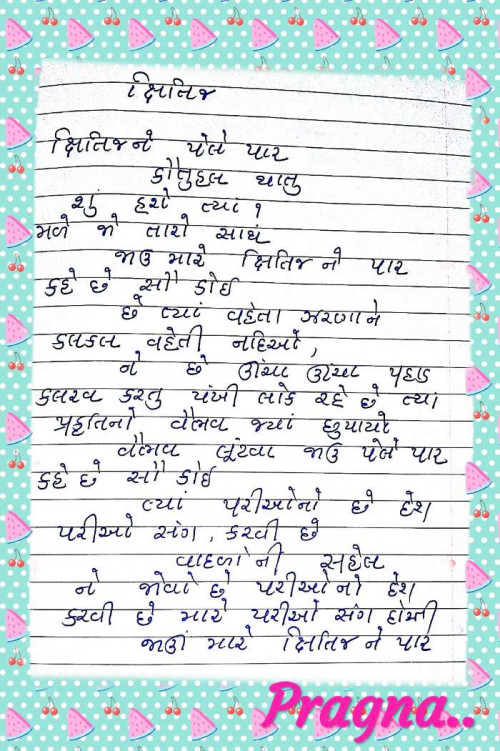 ક્ષિતિજ
ક્ષિતિજને પેલે પાર
કૌતુહલ થાતુ
શું હશે ત્યાં ?
મળે જો તારો સાથ
જાઉ મારે ક્ષિતિજ ને પાર
કહે છે સૌ કોઈ
છે ત્યાં વહેતા ઝરણાને
કલકલ વહેતી નદિઓ,
ને છે ઊંચા ઊંચા પહાડ
કલરવ કરતુ પંખી લોક રહે છે ત્યાં
પ્રકૃતિનો વૈભવ જ્યાં છુપાયો
વૈભવ લૂંટવા જાઉ પેલે પાર
કહે છે સૌ કોઈ
ત્યાં પરીઓનો છે દેશ
પરીઓ સંગ, કરવી છે
વાદળોની સહેલ
ને જોવો છે પરીઓનો દેશ
કરવી છે મારે પરીઓ સંગ દોસ્તી
જાઉં મારે ક્ષિતિજ ને પાર
Pragna..